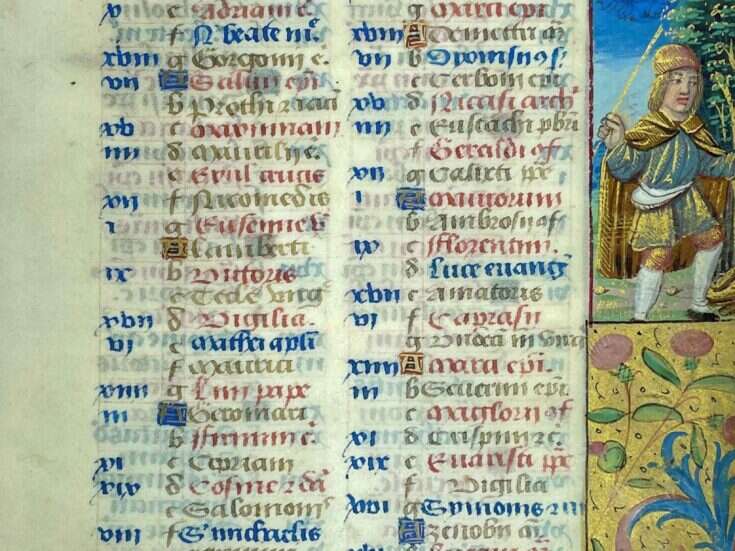 v e Adriani c.
f N beate m
xviii g Gorgonii c.
vii A Salvii epi
b Prothi z iaci
xv c Maximiani
iiii d Maurilii c.
e Exal crucis
xii f Nicomedis
i g Eufemie v
A Lamberti
ix b Victoris
c Tecle virg
xvii d Vigilia.
vi e Mathei apli
f Mauricii
xiiii g Lini pape
iii A Geromari
b Firmini c.
xi c Cipriani
xix d Cosme z da
e Salomonis
viii f S michaelis
g Marci epi
xviii A Demetrii
vii b Dyonisii
c Cerboni epi
xv d Nicasii arch
iiii e Eustachi pbri
f Geraldi cf
xii g Calixti pp
i A Maurorum
b Ambrosii cf
ix c Florentini.
d Luce evang
xvii e Amatoris
vi f Caprasii
g m virg
xiiii A epi
iii b Severini epi
c Maglorii cf
xi d Crispini z c.
xix e Evaristi pp
f Vigilia
g Symonis z iu
A Zenobii